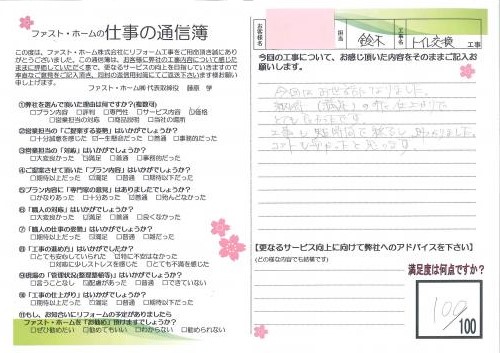 ファスト・ホームの仕事の通信簿
この度は、ファスト・ホーム株式会社にリフォーム工事をご用命頂き誠にあり
がとうございました。この通信簿は、お客様に弊社の工事内容について感じた
ままに評価していただく事で、更なるサービスの向上を目指していきますので
率直なご意見をご記入頂き、同封の返信用封筒にてご返送下さいます様お願い
申し上げます。
ファスト・ホーム㈱ 代表取締役 藤原 学
①弊社を選んで頂いた理由は何ですか?(複数可)
□プラン内容 □評判 □専門性 □サービス内容 ☑価格
□営業担当の対応 □商品説明 □当社の雰囲
②営業担当の「ご提案する姿勢」はいかがでしょうか?
□十分誠意を感じた ☑一生懸命だった □普通 □事務的だった
③営業担当の「対応」はいかがでしょうか?
□大変良かった ☑満足 □普通 □事務的だった
④ご提案させて頂いた「プラン内容」はいかがでしょうか?
□期待以上だった ☑満足 □普通 □不満だった
⑤プラン内容に「専門家の意見」はありましたでしょうか?
□かなりあった □十分あった ☑普通 □他んどなかった
⑥「職人の対応」はいかがでしょうか?
□大変良かった ☑満足 □普通 □良くなかった
⑦「職人の仕事の姿勢」はいかがでしょうか?
□期待以上だった ☑満足 □普通 □雑だった
⑧「工事の進め方」はいかがでしたか?
□とても安心していられた ☑特に不安はなかった
□対応に少しストレスを感じた □とても不満を感じた
⑨現場の「管理状況(整理整頓等)」はいかがでしょうか?
□言うことなし □配慮があった ☑普通 □できていない
⑩「工事の仕上がり」はいかがでしょうか?
□期待以上だった ☑満足 □普通 □不満だった
⑪もし、お知合いにリフォームの予定がありましたら
ファスト・ホームを「お勧め」頂けますでしょうか?
□ぜひ勧めたい ☑勧めてもいい □わからない □勧められない
お客様名
担当
鈴木
工事名
トイレ交換
工事
今回の工事について、お感じ頂いた内容をそのままご記入お
願いします。
今回は お世話になりました。
【更なるサービス向上に向けて弊社へのアドバイスを下さい】
(どの様な内容でも結構です)
満足度は何点ですか?
100
100